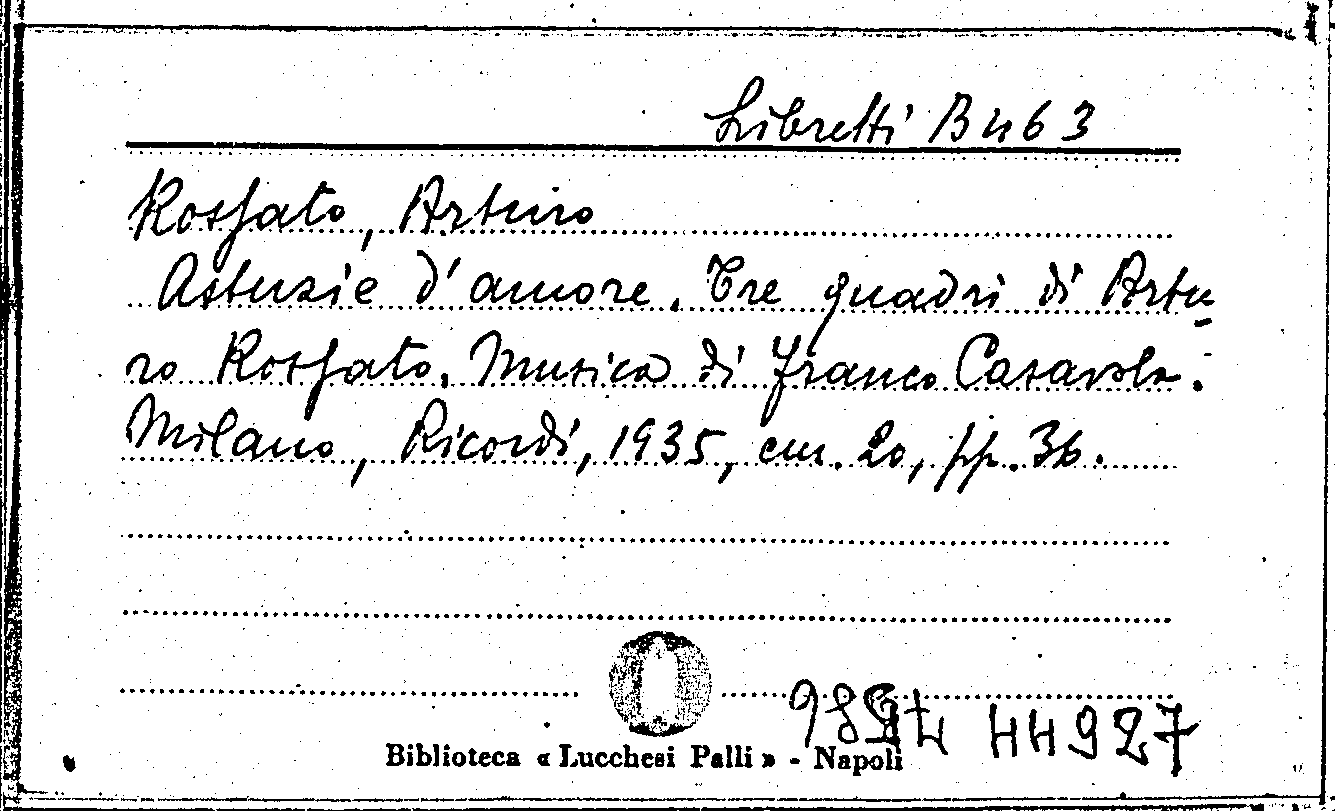 Libretti B 463
Rossato, Arturo
Astuzie d'amore. Tre quadri di Artu-
ro Rossato. Musica di Franco Casavola.
Milano, Ricordi, 1935, cm. 20, pp. 36.
44927
Biblioteca « Lucchesi Palli » - Napoli